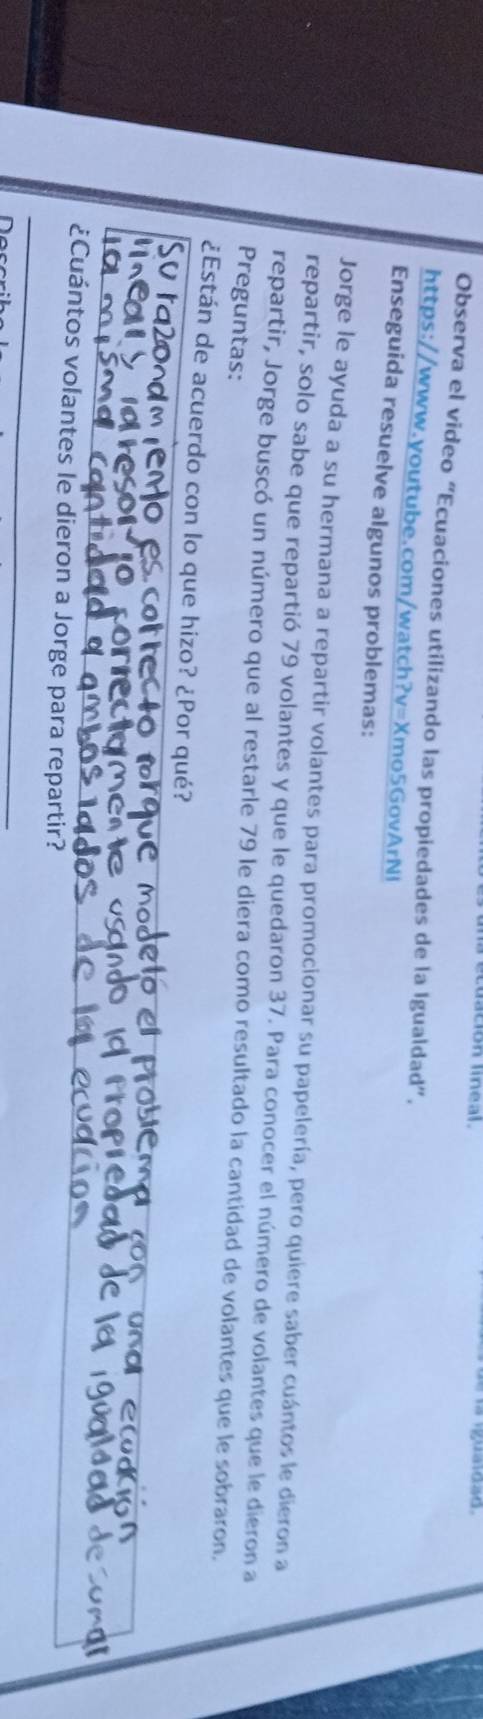 ecuación lineal. de la igualdad.
Observa el video “Ecuaciones utilizando las propiedades de la Igualdad”.
https://www.youtube.com/watch?v=Xmo5GovArNI
Enseguida resuelve algunos problemas:
Jorge le ayuda a su hermana a repartir volantes para promocionar su papelería, pero quiere saber cuántos le dieron a
repartir, solo sabe que repartió 79 volantes y que le quedaron 37. Para conocer el número de volantes que le dieron a
repartir, Jorge buscó un número que al restarle 79 le diera como resultado la cantidad de volantes que le sobraron.
Preguntas:
¿Están de acuerdo con lo que hizo? ¿Por qué?
Su razonamiento es correcto porque modeló el problema con una ecuación
lineal y la resolvió correctamente usando la propiedad de la igualdad de sumar
la misma cantidad a ambos lados de la ecuacion
¿Cuántos volantes le dieron a Jorge para repartir?